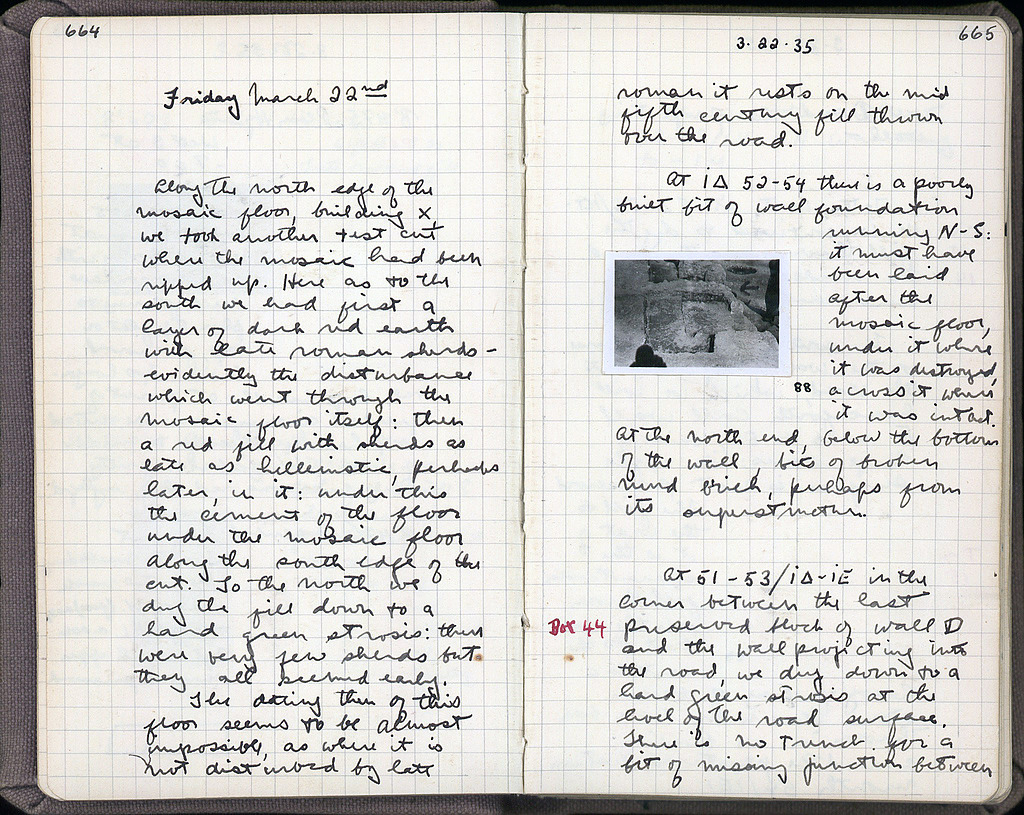 664
Friday March 22nd
Along the north edge of the
mosaic floor, building X,
we took another test cut
where the mosaic had been
ripped up. Here as to the
south we had first a
layer of dark red earth
with late roman sherds -
evidently the disturbance
which went through the
mosaic floor itself: then
a red fill with sherds as
late as hellenistic, perhaps
later, in it: under this
the cement of the floor
under the mosaic floor
along the south edge of the
cut. To the north we
dug the fill down to a
hard green strosis: there
were very few sherds but
they all seemed early.
The dating then of this
floor seems to be almost
impossible, as where it is
not disturbed by late
665
3.22.35
roman it rests on the mid
fifth century fill thrown
over the road.
At ΙΔ 52-54 there is a poorly
built bit of wall foundation
running N-S:
it must have
been laid
after the
mosaic floor,
under it where
it was destroyed,
across it where
it was intact.
88
At the north end, below the bottom
of the wall, bits of broken
mud brick, perhaps from
its superstructure.
At 51-53/ΙΔ-ΙΕ in the
corner between the last
Box 44
preserved block of wall D
and the wall projecting into
the road, we dug down to a
hard green strosis at the
level of the road surface.
There is no trench for a
bit of missing junction between